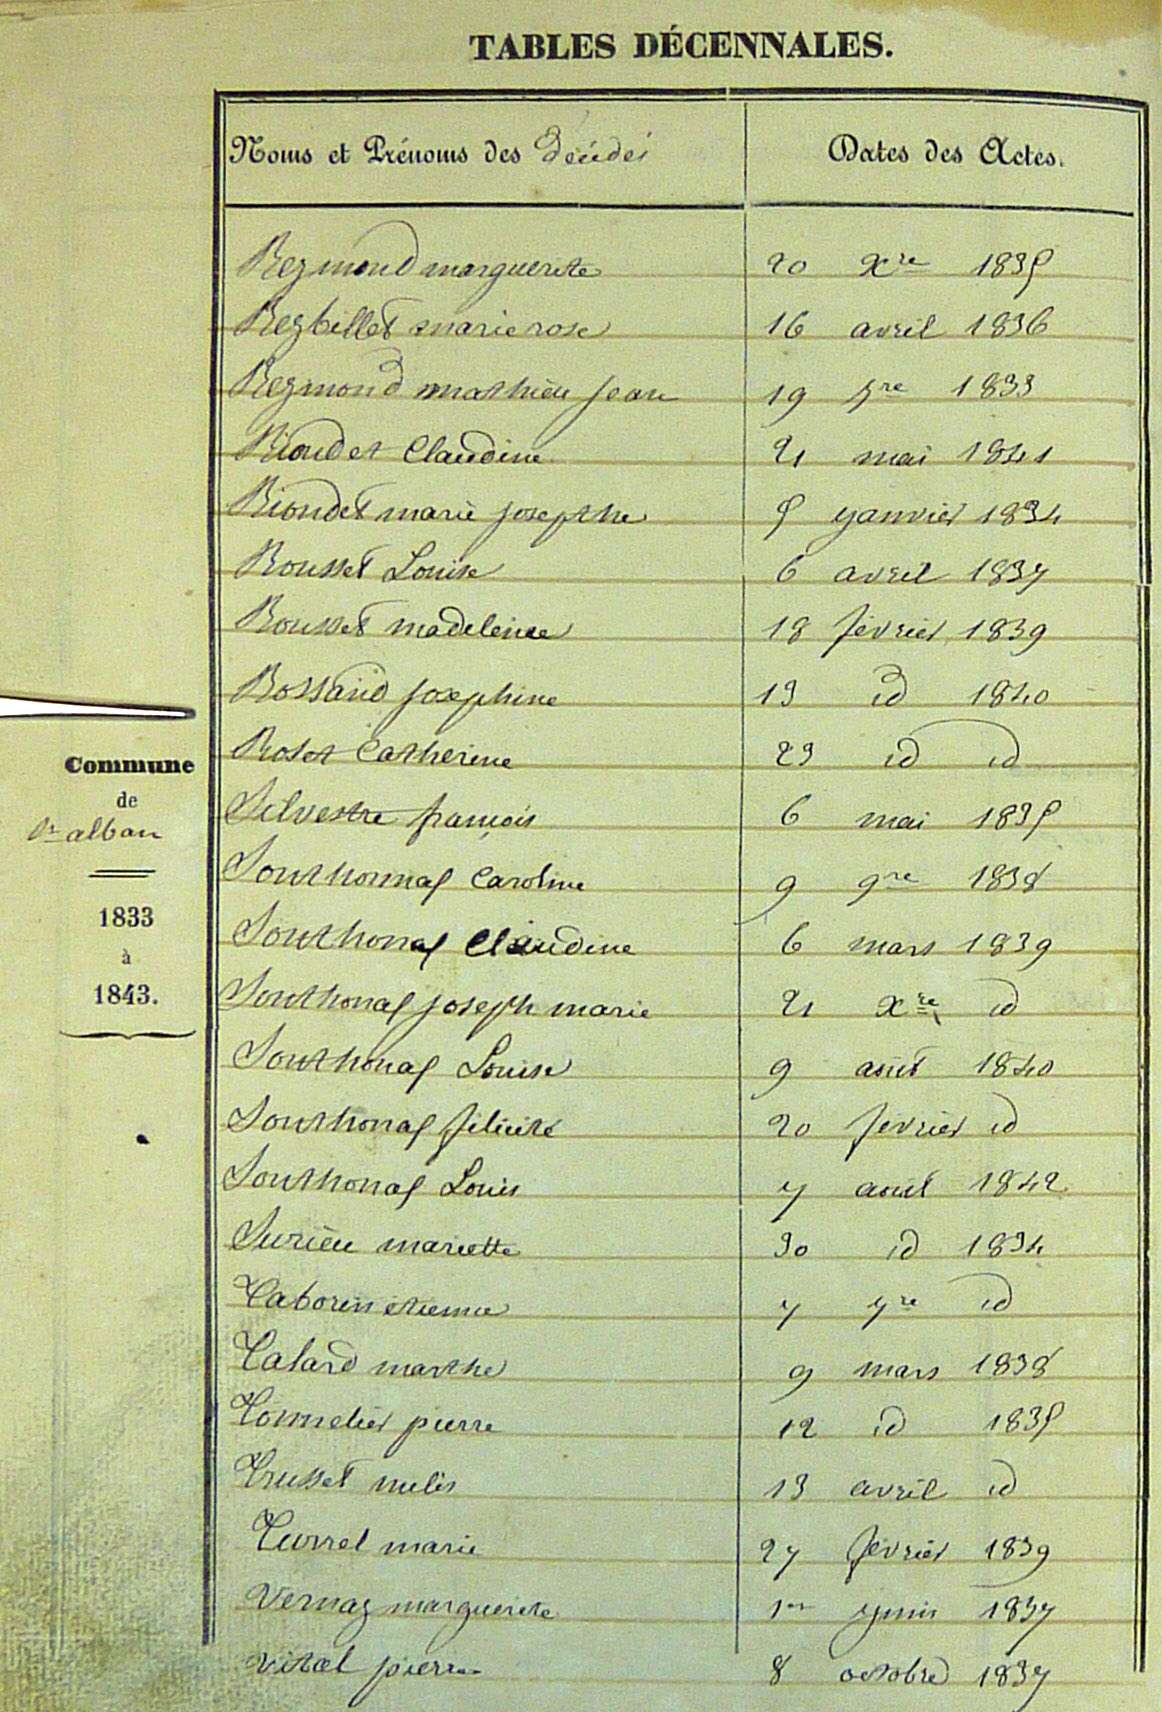 TABLES DÉCENNALES.
Noms et Prénoms des Décédés Dates des Actes.
Reymond marguerite 20 Xre 1835
Reybillet marie rose 16 avril 1836
Reymond mathieu jean 19 7re 1833
Rioudet Claudine 21 mai 1841
Rioudet marie josephe 5 janvier 1834
Rousset Louise 6 avril 1837
Rousset madeleine 18 février 1839
Rossand josephine 13 id 1840
Roset Catherine 23 id id
Silvestre françois 6 mai 1835
Southonnas Caroline 9 9re 1838
Southonas Claudine 6 mars 1839
Southonas joseph marie 21 Xre id
Southonas Louise 9 août 1840
Southonas félicité 20 février id
Southonas Louis 7 aout 1842
Surieu mariette 30 id 1834
Taborin etienne 7 7re id
Talard marthe 9 mars 1838
Tonnelier pierre 12 id 1835
Trusset 13 avril id
Turrel marie 27 février 1839
Vernaz marguerite 1er juin 1837
Vital pierre 8 octobre 1837
Commune
de
St alban
1833
à
1843.